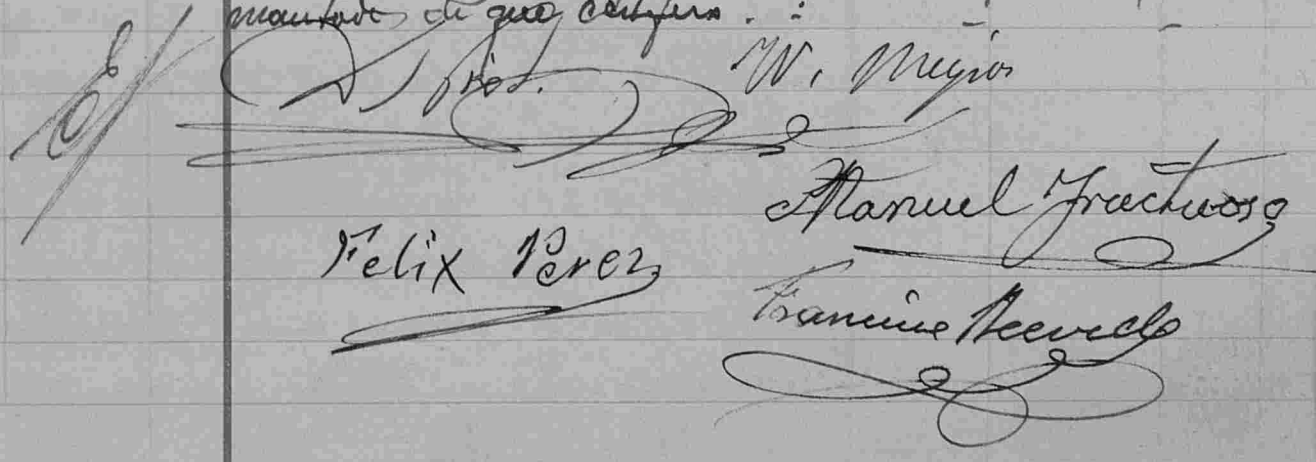 de que certifico.
W. Megias
Manuel Fructuoso
Felix Perez
Francisco Acevedo